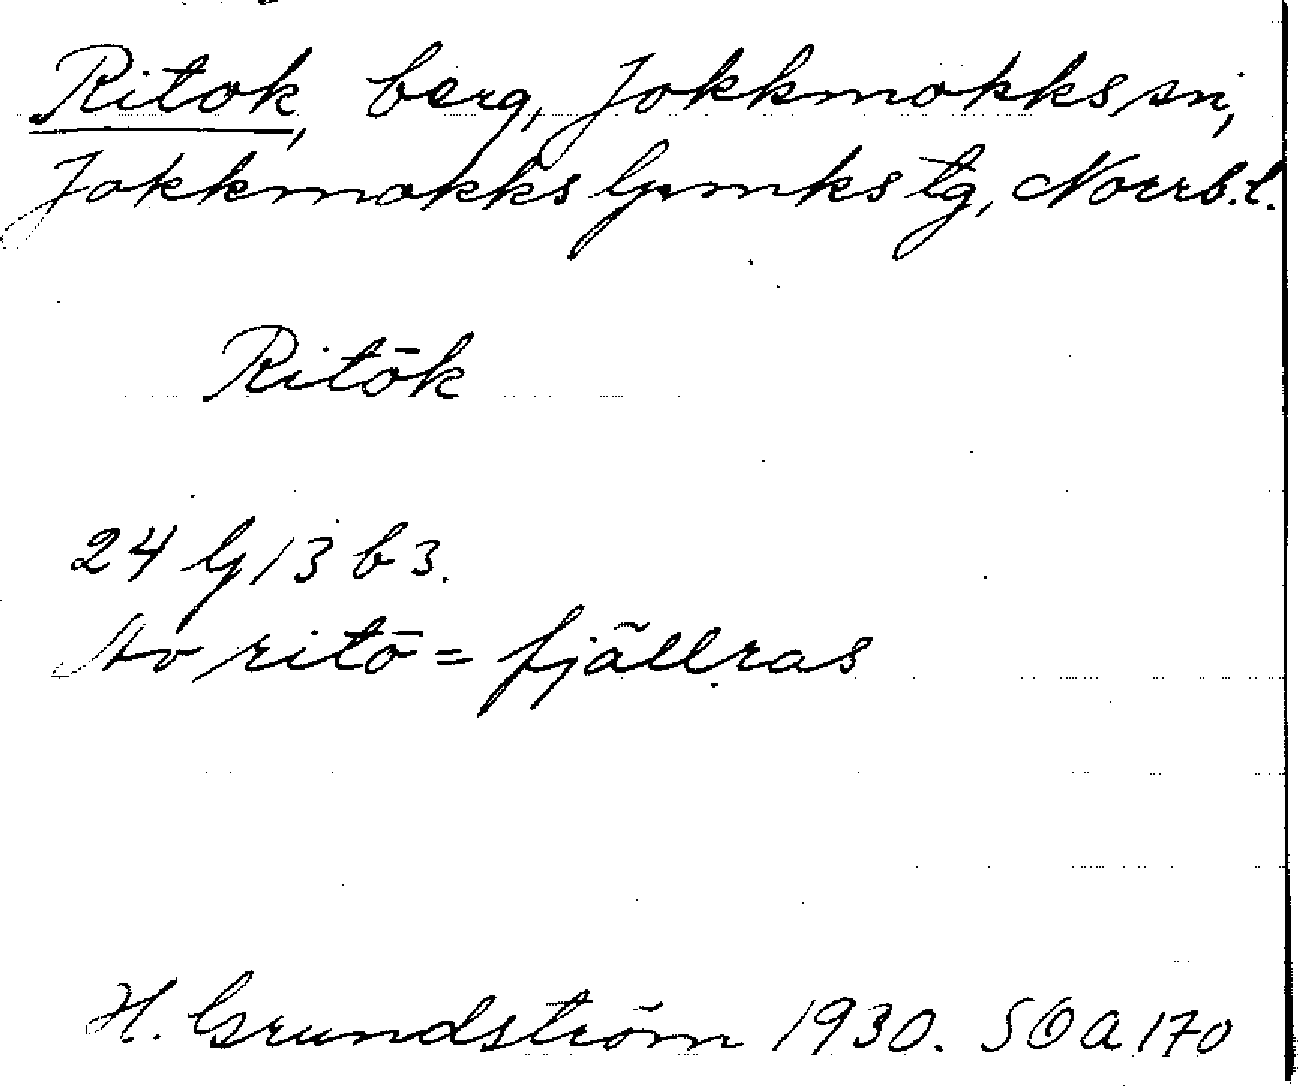 Ritok, berg, Jokkmokks sn,
Jokkmokks lpmks tg, Norrb.l.
Ritōk
24 G 13 b 3.
Av ritō = fjällras
H. Grundström 1930. SOA 170